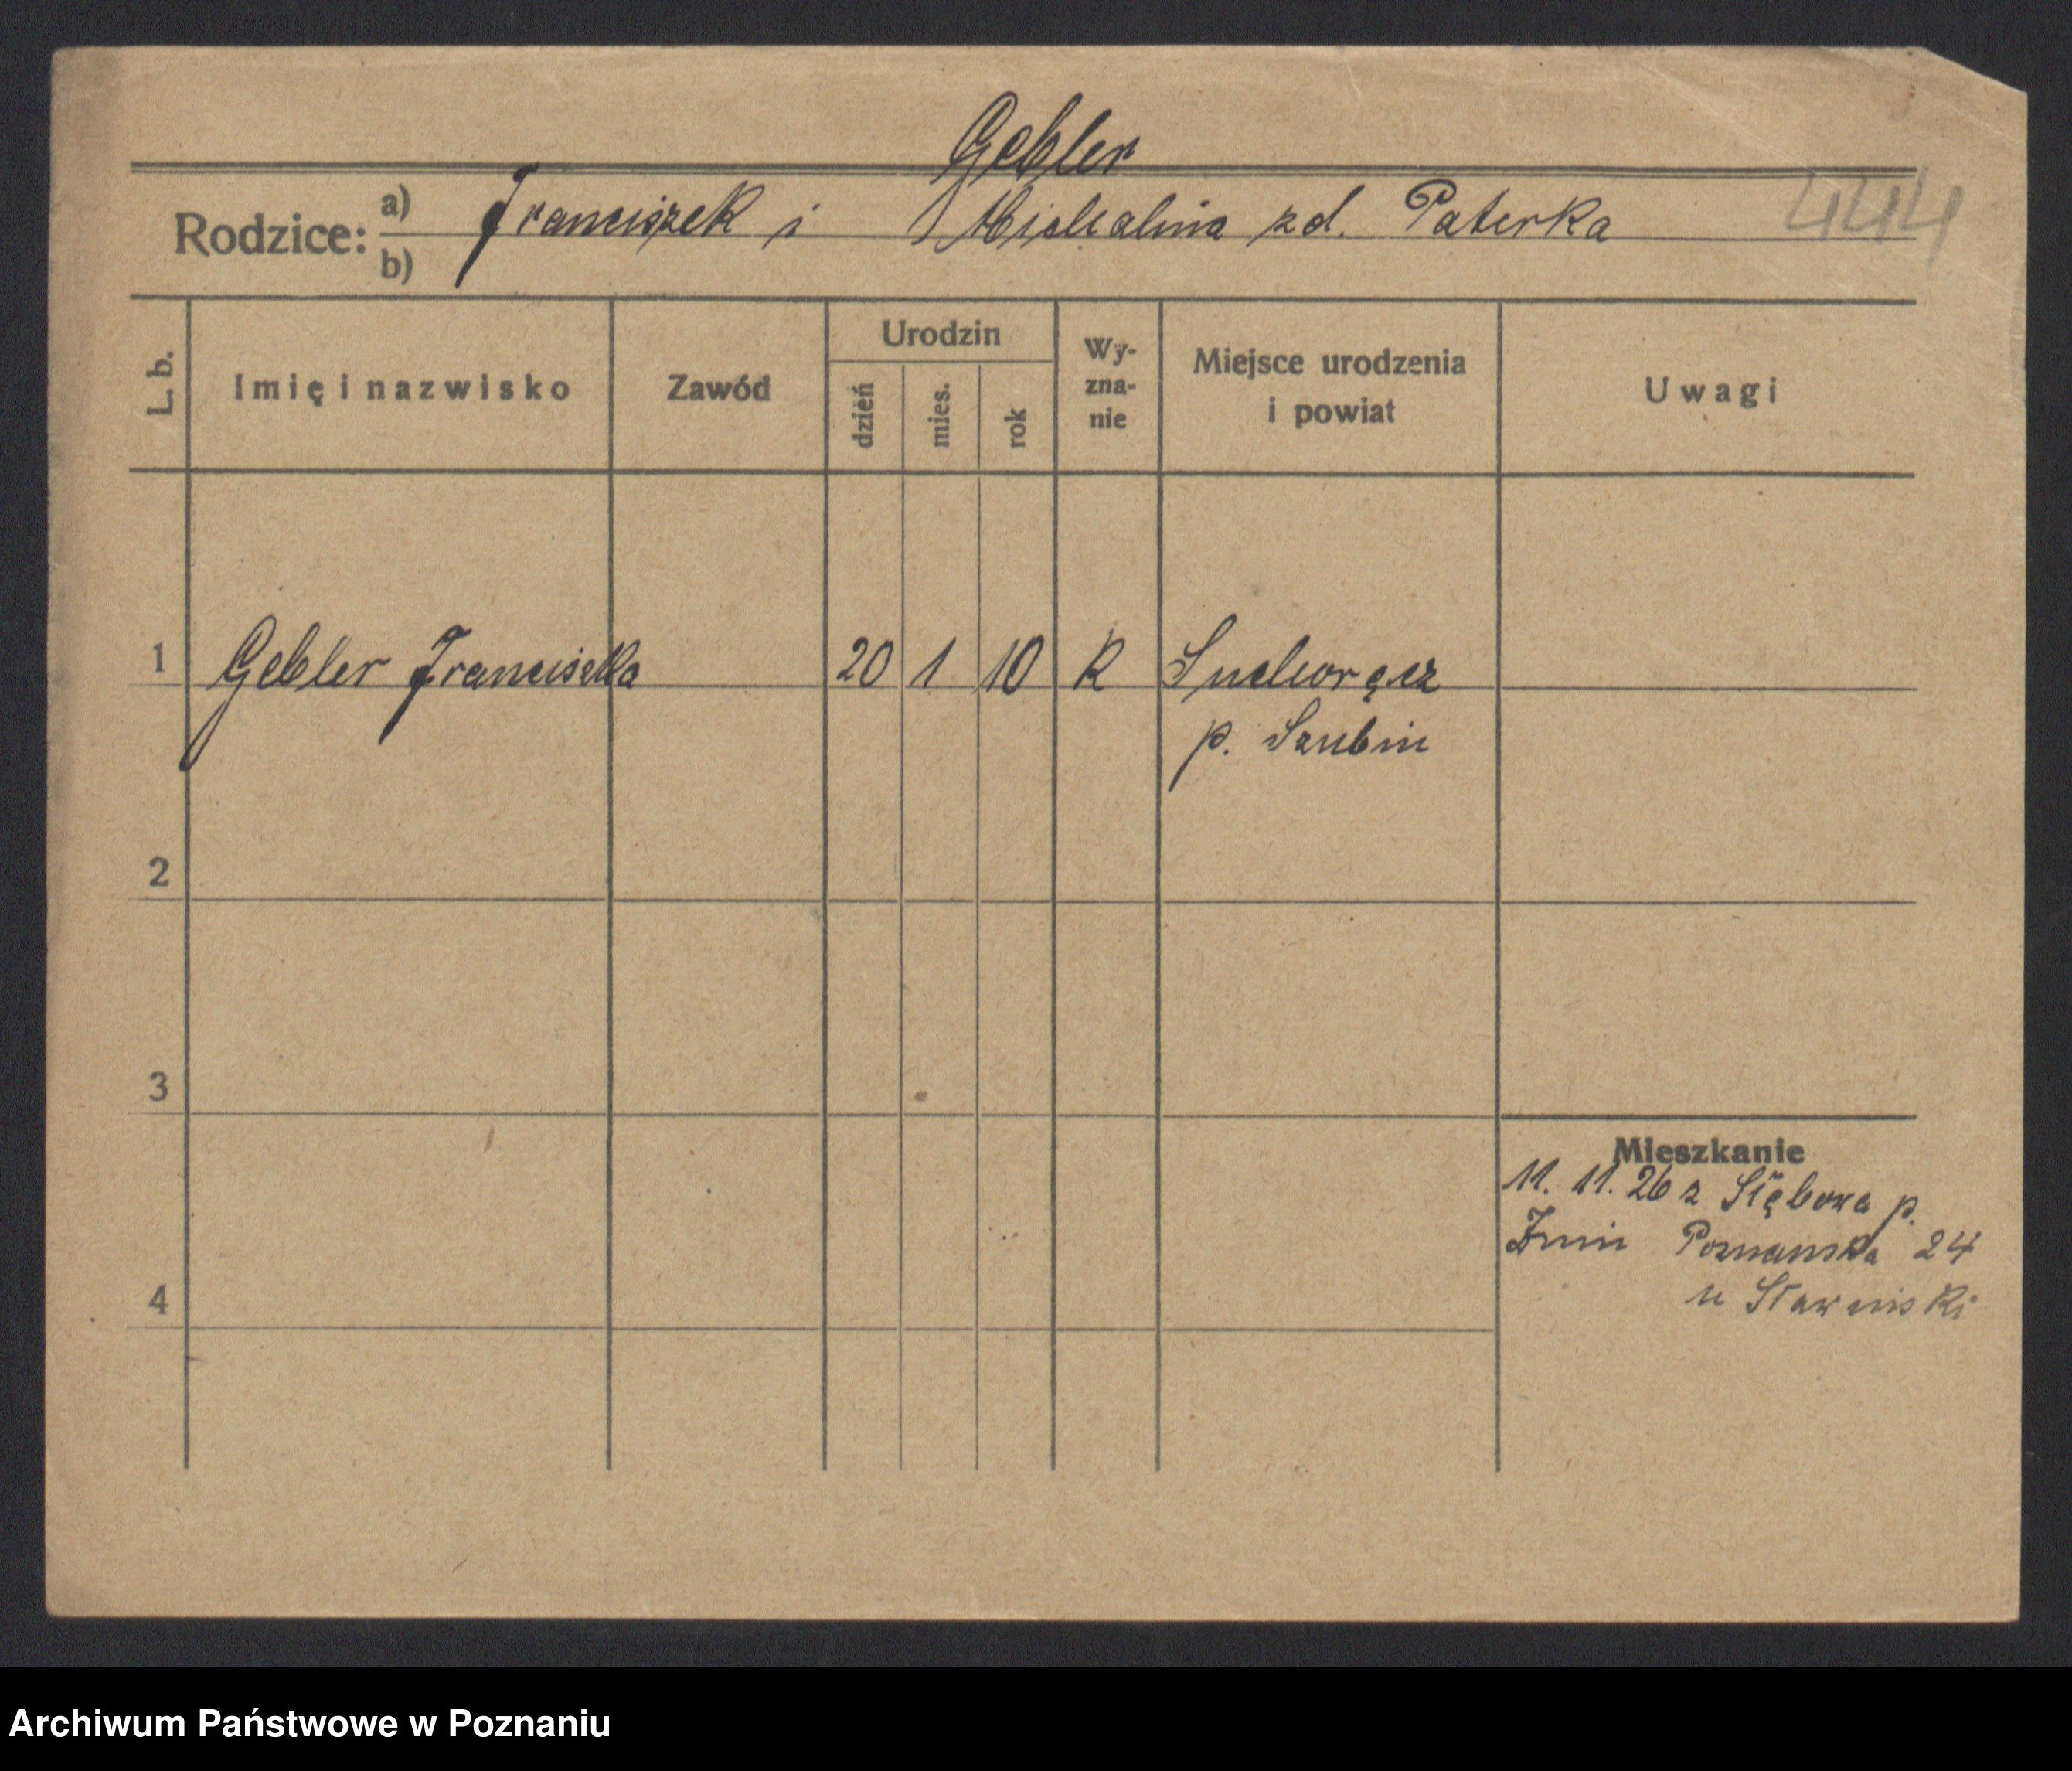 Gebler
Rodzice: a) Franciszek i Michalina zd. Paterka 444
b)
L. b. Imię i nazwisko Zawód Urodzin dzień mies. rok Wy-zna-nie Miejsce urodzenia i powiat Uwagi
1 Gebler Franciszka 20 1 10 K Suchoręcz
p. Szubin
2
3
Mieszkanie
11. 11. 26 z Słębowa p.
Żnin Poznanska 24
4
u Stawinski
Archiwum Państwowe w Poznaniu